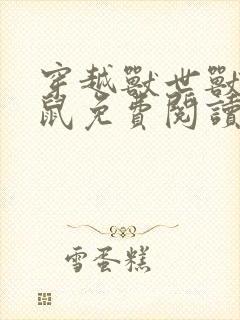 穿越獸世獸
鼠免費閱讀
雪蛋糕